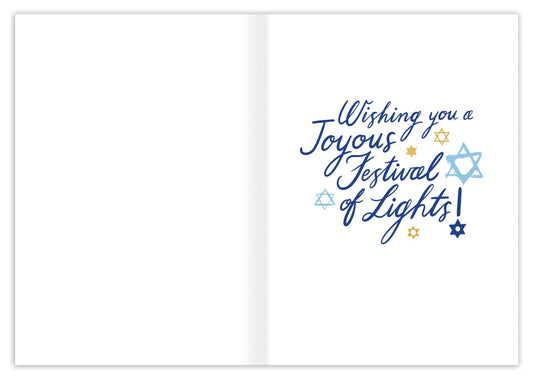 Wishing you a
Joyous
Festival
of Lights!